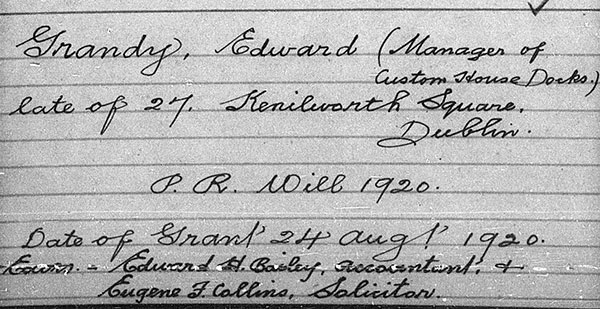 Grandy, Edward (Manager of
Custom House Docks.)
late of 27. Kenilworth Square,
Dublin.
P. R. Will 1920.
Date of Grant 24 Augt 1920.
Edward H. Bailey, accountant, &
Eugene F. Collins, Solicitor.